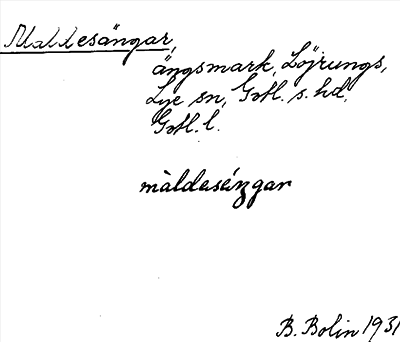 Maldesängar,
ängsmark, Löjrungs,
Lye sn, Gotl. s. hd.
Gotl. l.
màldeséngar
B. Bolin 1931